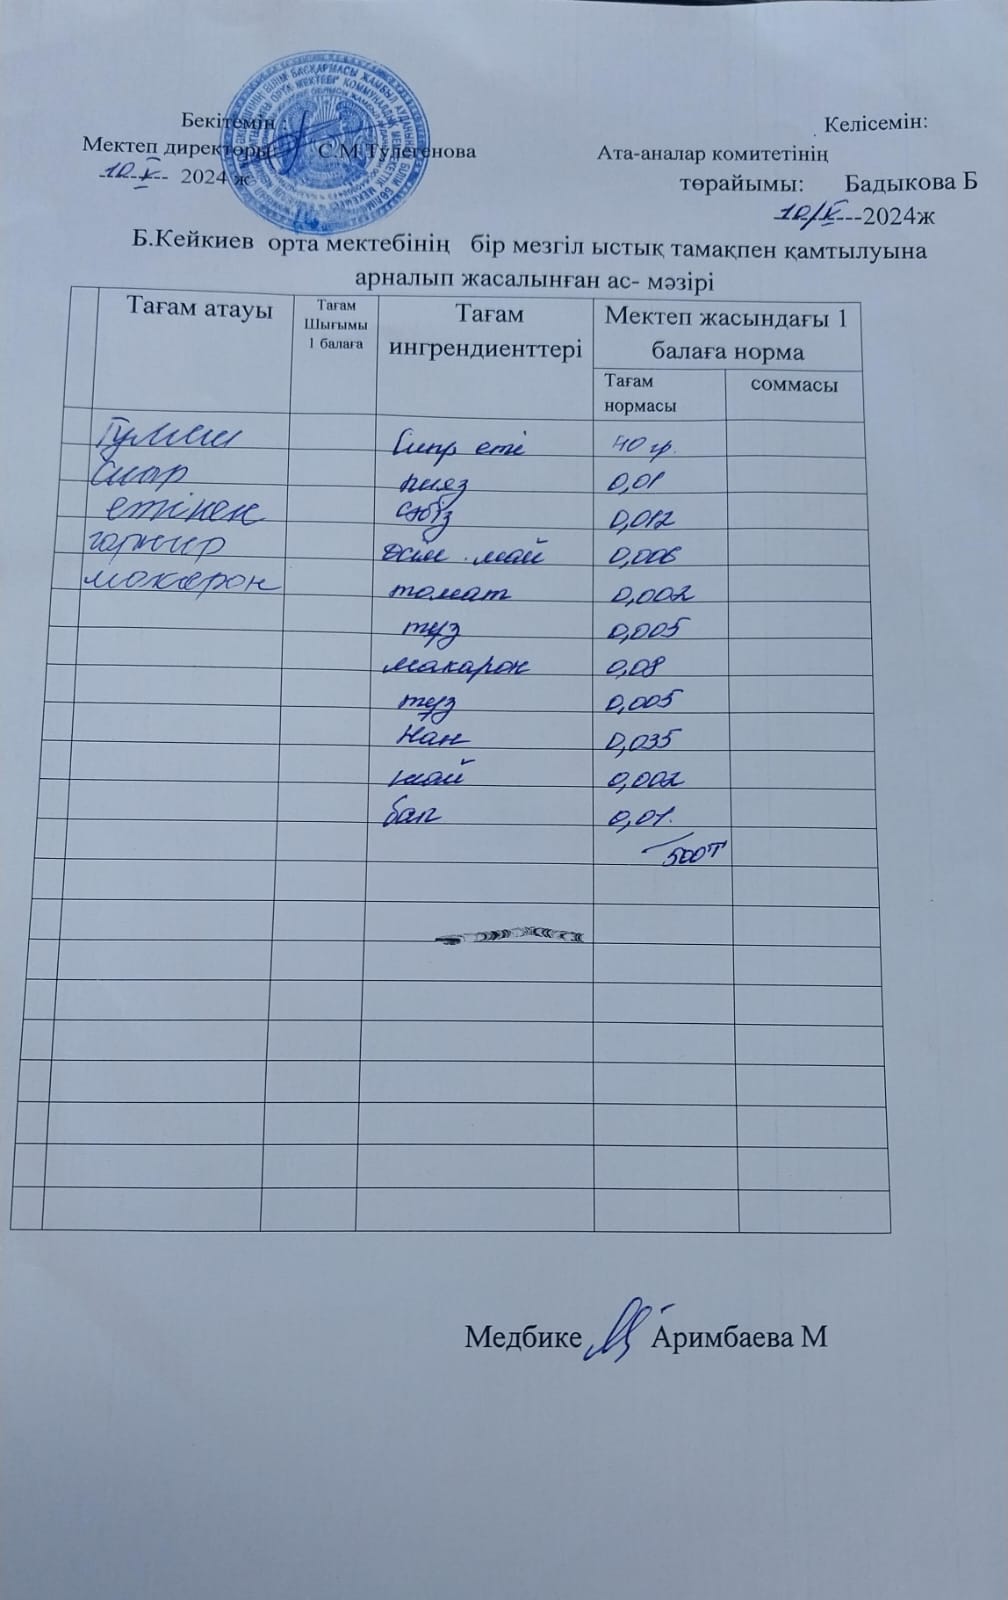 Бекітемін:
Келісемін:
Мектеп директоры С.М Тулегенова
Ата-аналар комитетінің
10 X 2024 ж
төрайымы: Бадыкова Б
10/X---2024ж
Б.Кейкиев орта мектебінің бір мезгіл ыстық тамақпен қамтылуына
арналып жасалынған ас- мәзірі
Тағам атауы
Тағам
Шығымы
1 балаға
Тағам
ингрендиенттері
Мектеп жасындағы 1
балаға норма
Тағам
нормасы
соммасы
Гуляш Сиыр еті 40 гр.
Сиыр пияз 0,01
етінен сәбіз 0,012
гарнир өсім. май 0,006
макарон томат 0,002
тұз 0,005
макарон 0,08
тұз 0,005
Нан 0,035
шай 0,002
бал 0,01.
500т
Медбике Аримбаева М